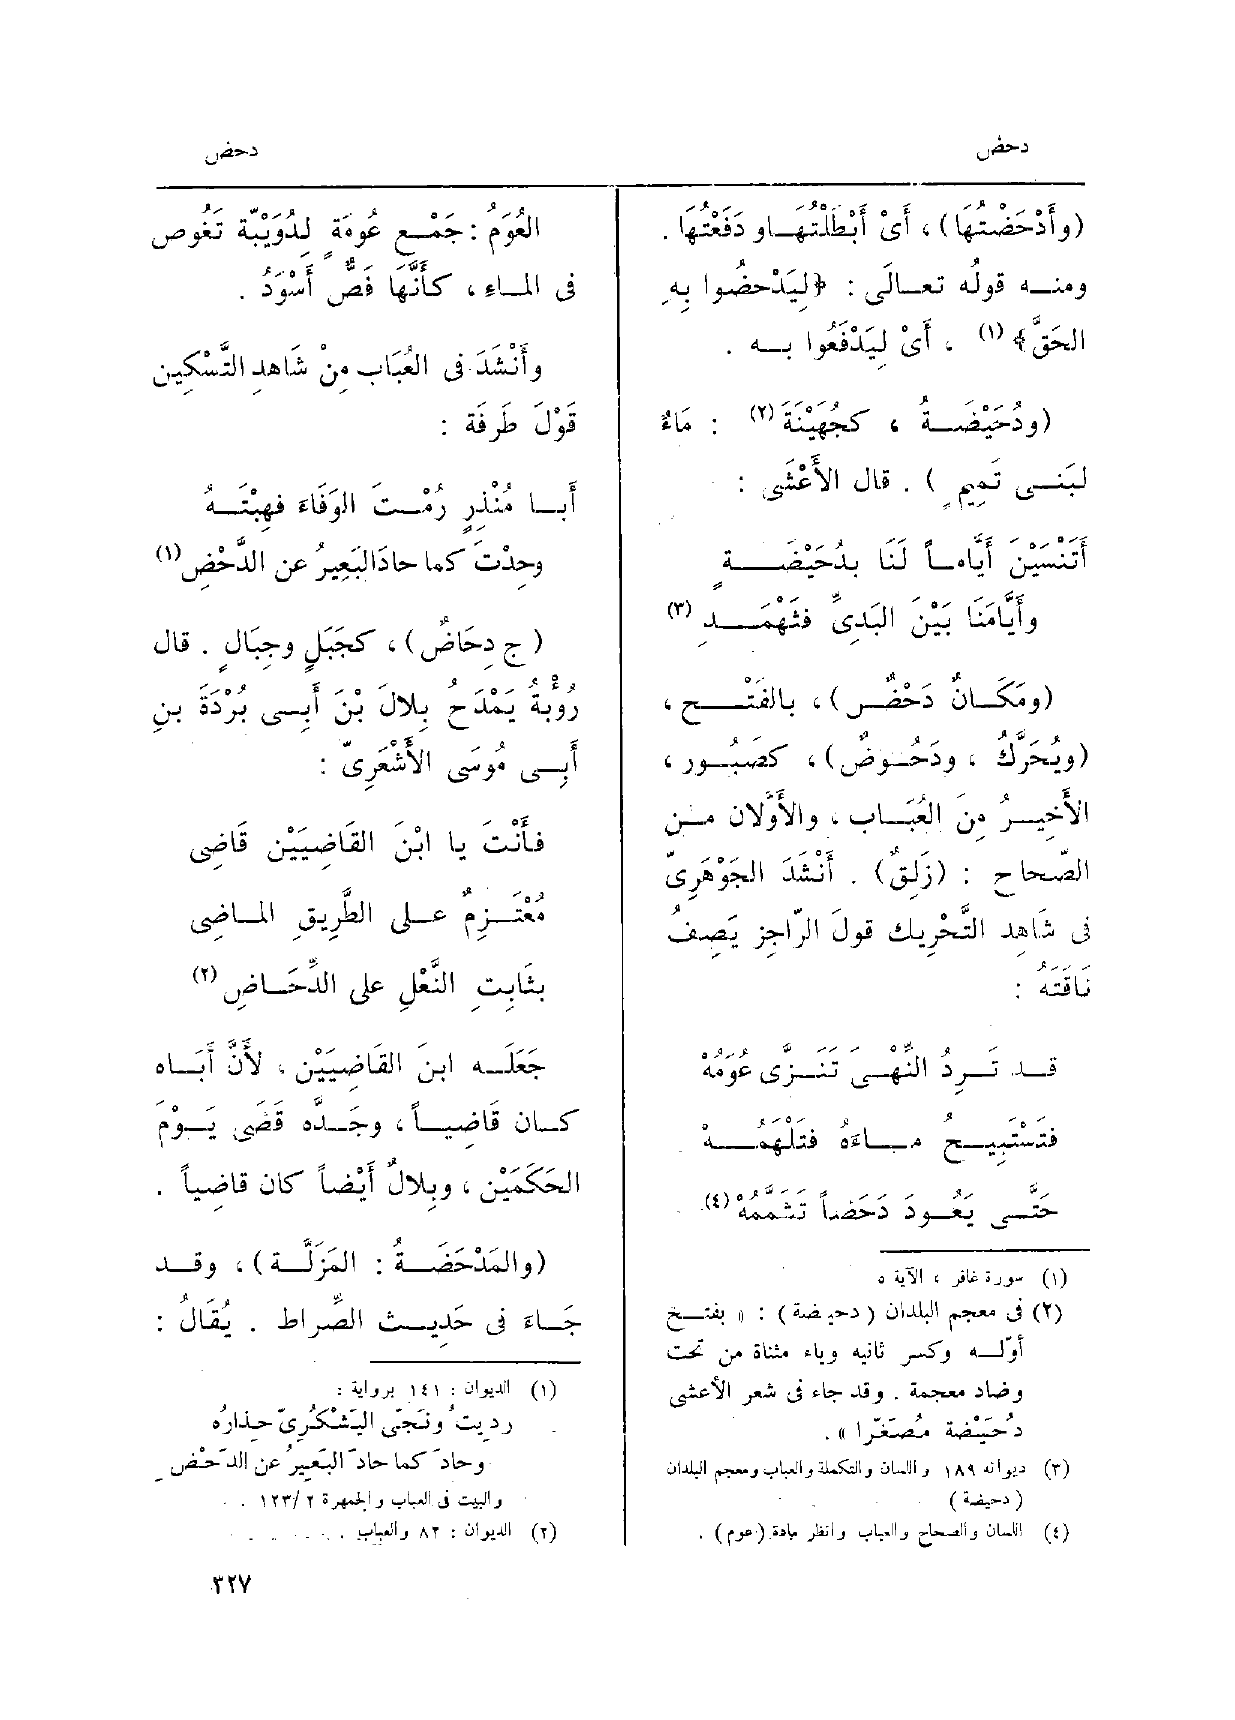 دحض
دحض
(وأَدْحَضْتُهَا) ، أَىْ أَبْطَلْتُهَـا و دَفَعْتُهَا .
ومنـه قولُه تعـالَى : ﴿لِيُدْحِضُوا بِهِ
الحَقَّ﴾ (١) ، أَىْ لِيَدْفَعُوا بـه .
(ودُحَيْضَـةُ ، كجُهَيْنَةَ (٢) : مَاءٌ
لِبَنِـى تَمِيمٍ ) . قال الأَعْشَى :
أَتَنْسَيْنَ أَيَّامـاً لَنَا بِدُحَيْضَـةٍ
وأَيَّامَنَا بَيْنَ البَدِىِّ فثَهْمَـدِ (٣)
(ومَكَـانٌ دَحْضٌ) ، بالفَتْـح ،
(ويُحَرَّك ، ودَحُـوضٌ) ، كصَبُـور ،
الأَخِيـرُ مِنَ العُبَـاب ، والأَوَّلان مـن
الصّحاح : (زَلِقٌ) . أَنْشَدَ الجَوْهَرِىّ
فى شَاهِد التَّحْرِيك قولَ الرّاجزِ يَصِفُ
نَاقَتَهُ :
قـد تَـرِدُ النِّهْـىَ تَنَـزَّى عُوَمُهْ
فتَسْتَبِيـحُ مـاءَهُ فتَلْهَمُـهْ
حَتَّـى يَعُـودَ دَحَضاً تَشَمَّمُهْ (٤)
(١) سورة غافر ، الآية ٥
(٢) فى معجم البلدان ( دحيضة ) : « بفتـح
أوّلـه وكسر ثانيه وياء مثناة من تحت
وضاد معجمة . وقد جاء فى شعر الأعشى
دُحَيْضة مُصَغّرا » .
(٣) ديوانه ١٨٩ واللسان والتكملة والعباب ومعجم البلدان
( دحيضة )
(٤) اللسان والصحاح والعباب وانظر مادة (عوم) .
العُوَمُ : جَمْـع عُومَةٍ لِدُوَيْبَّةٍ تَغُوص
فى المـاء ، كأَنَّهَا فَصٌّ أَسْوَدُ .
وأَنْشَدَ فى العُبَاب مِنْ شَاهِدِ التَّسْكِينِ
قَوْلَ طَرَفَةَ :
أَبـا مُنْذِرٍ رُمْـتَ الوَفَاءَ فهِبْتَـهُ
وحِدْتَ كما حادَ البَعِيرُ عن الدَّحْضِ (١)
( ج دِحَاضٌ) ، كجَبَلٍ وجِبَالٍ . قال
رُؤْبَةُ يَمْدَحُ بِلالَ بْنَ أَبِـى بُرْدَةَ بنِ
أَبِـى مُوسَى الأَشْعَرِىّ :
فأَنْتَ يا ابْنَ القَاضِيَيْنِ قَاضِى
مُعْتَـزِمٌ عـلى الطَّرِيقِ المـاضِى
بثَابِتِ النَّعْلِ على الدِّحَـاضِ (٢)
جَعَلَـه ابنَ القَاضِيَيْنِ ، لأَنَّ أَبَـاه
كـان قَاضِيـاً ، وجَـدَّه قَضَى يَـوْمَ
الحَكَمَيْنِ ، وبِلالٌ أَيْضاً كان قاضِياً .
(والمَدْحَضَـةُ : المَزَلَّـة) ، وقـد
جَـاءَ فى حَدِيـث الصِّراط . يُقَالُ :
(١) الديوان : ١٤١ برواية :
رديتُ ونَجَّى اليَشْكُرِىّ حِذارُه
وحادَ كما حادَ البَعِيرُ عن الدَحْضِ
والبيت فى العباب والجمهرة ٢ /١٢٣ .
(٢) الديوان : ٨٢ والعباب .
٣٢٧